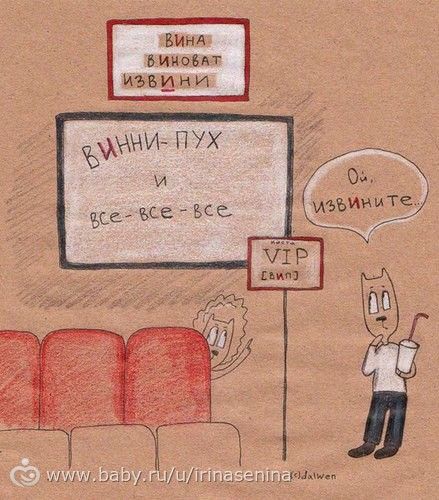 ВИНА
ВИНОВАТ
ИЗВИНИ
ВИННИ-ПУХ
И
ВСЕ-ВСЕ-ВСЕ
Ой,
ИЗВИНИТЕ..
места
VIP
[ВИП]
(c)dalwen
www.baby.ru/u/irinasenina